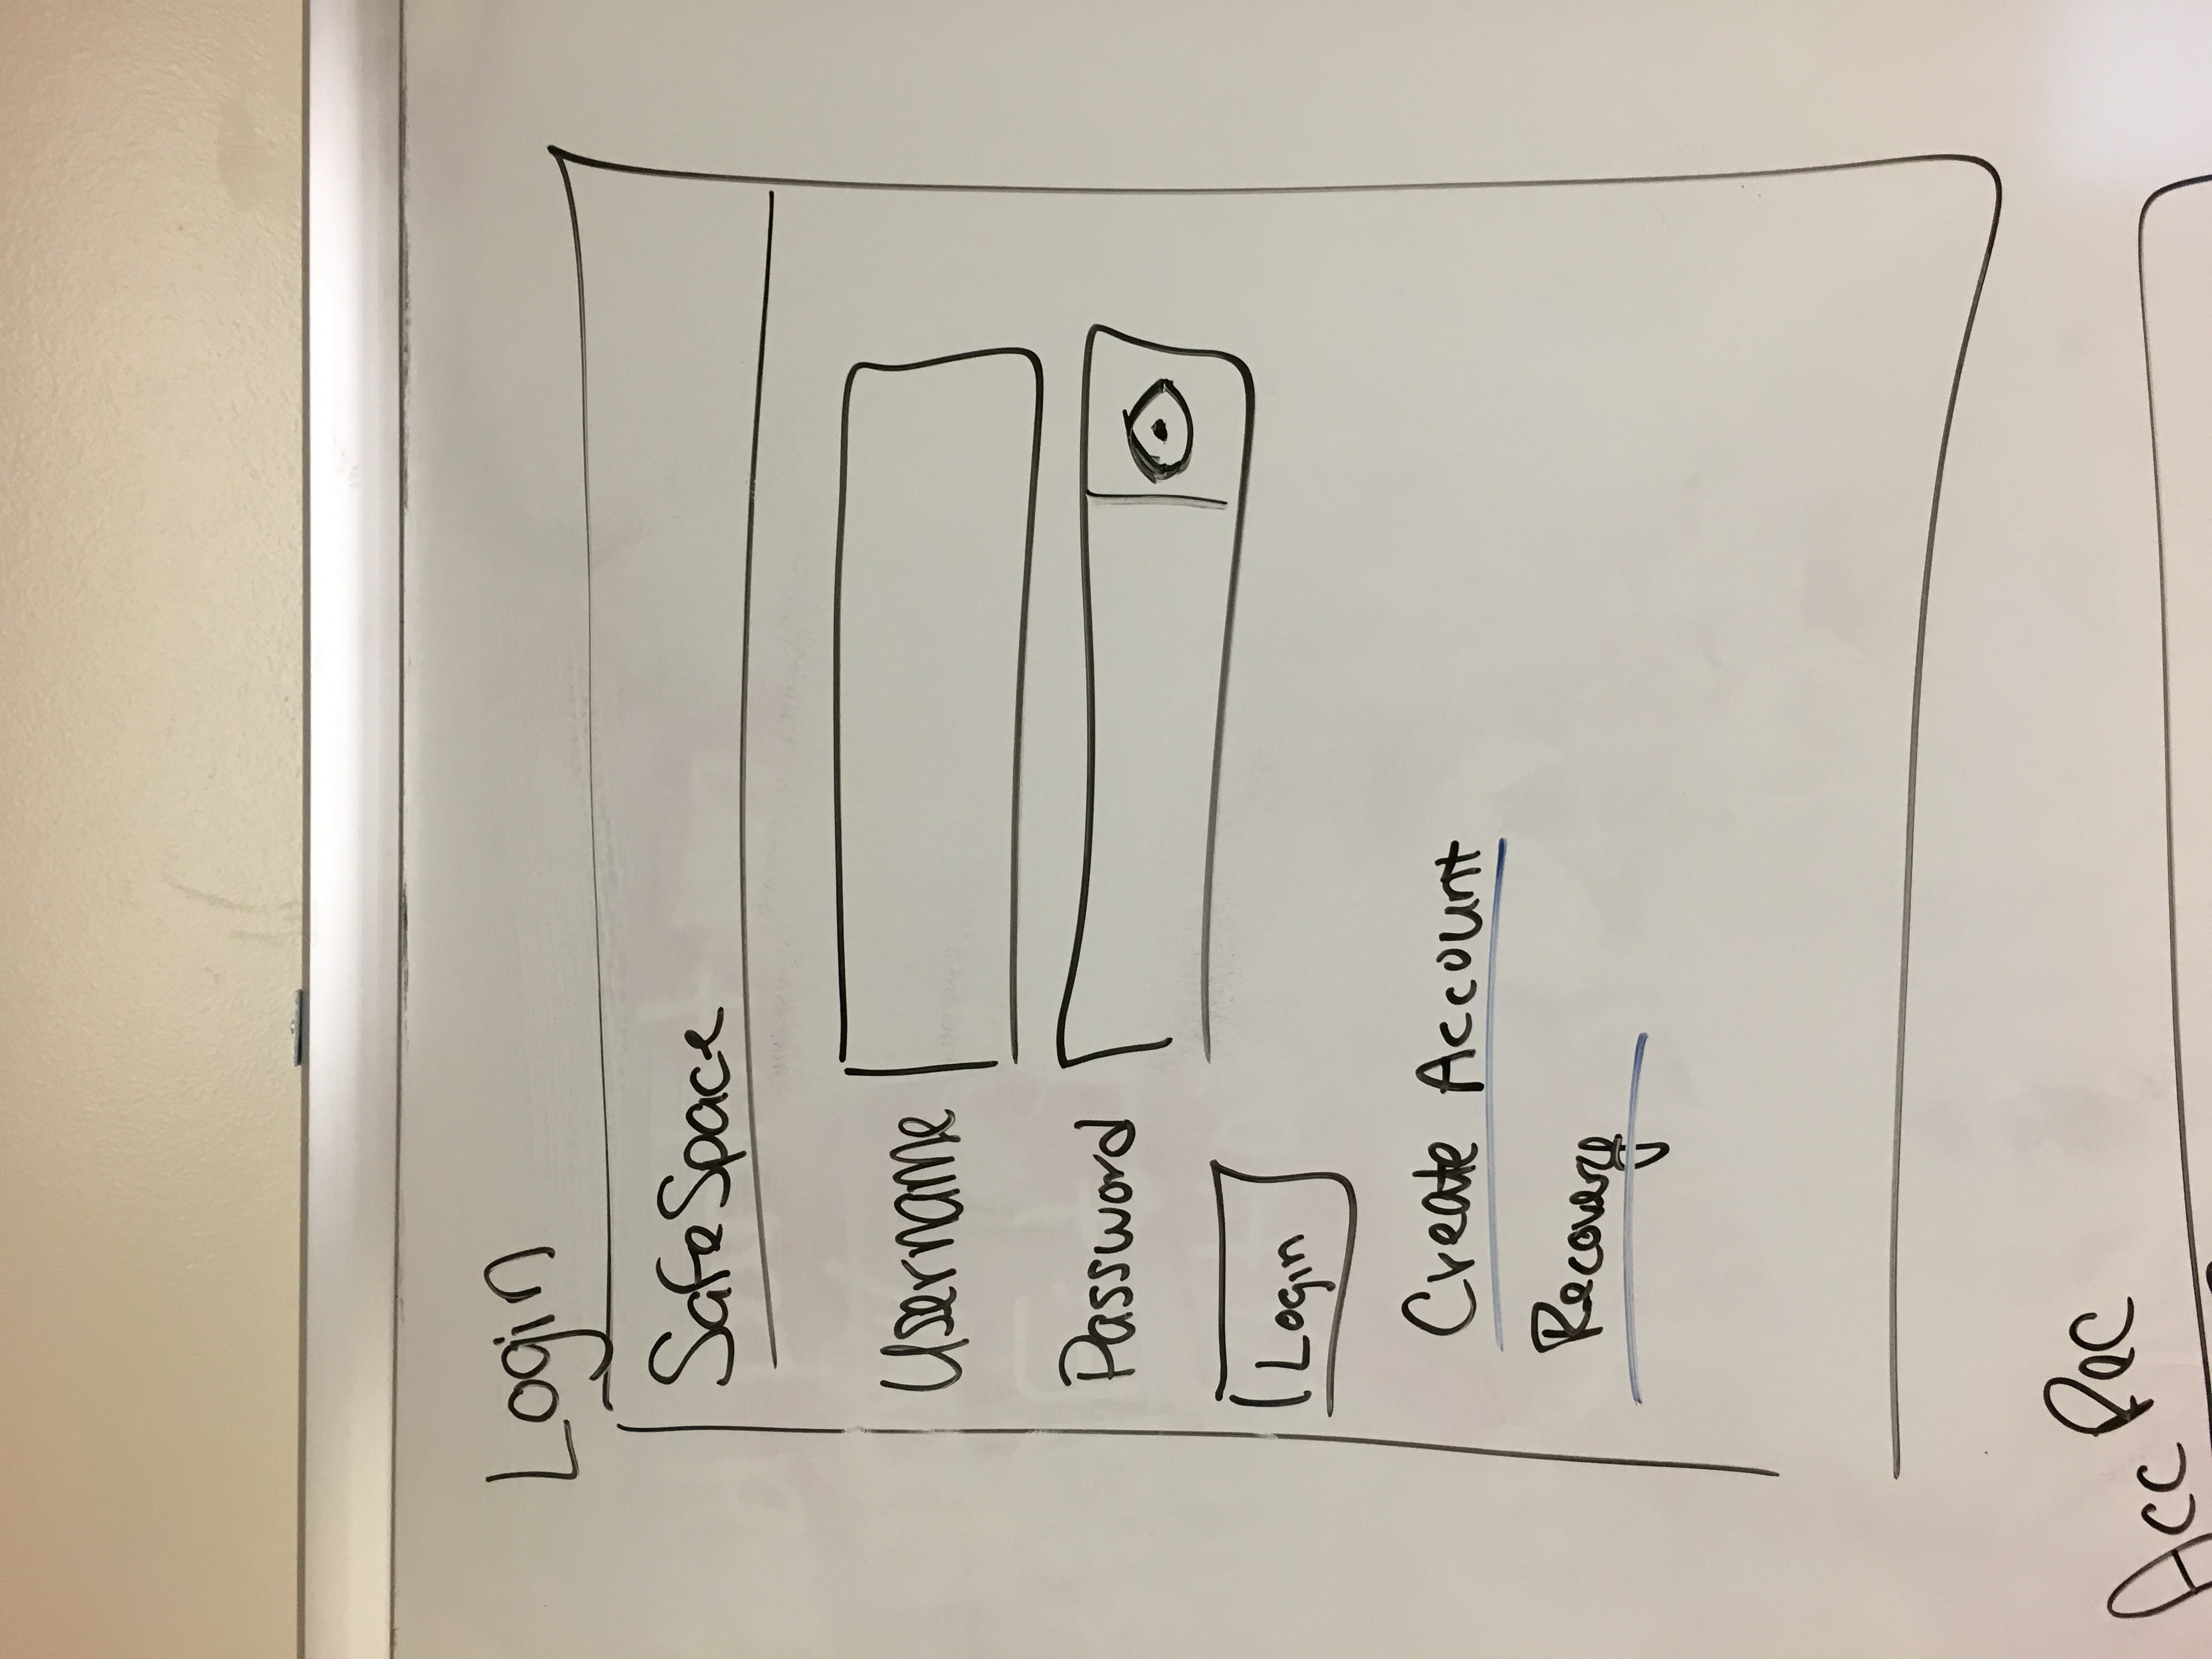 Login
SafeSpace
Username
Password
Login
Create Account
Recovery
Acc Rec